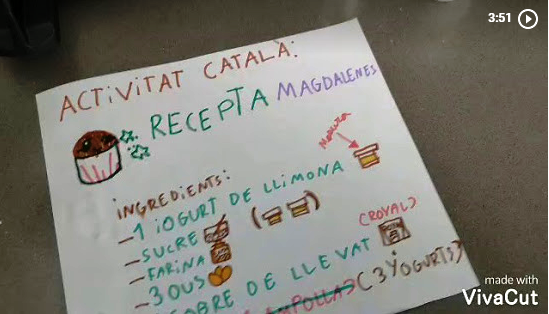 3:51
ACTIVITAT CATALÀ:
RECEPTA MAGDALENES
INGREDIENTS:
-1 IOGURT DE LLIMONA
-SUCRE
-FARINA
-3 OUS
SOBRE DE LLEVAT (ROYAL)
(3 IOGURTS)
made with
VivaCut